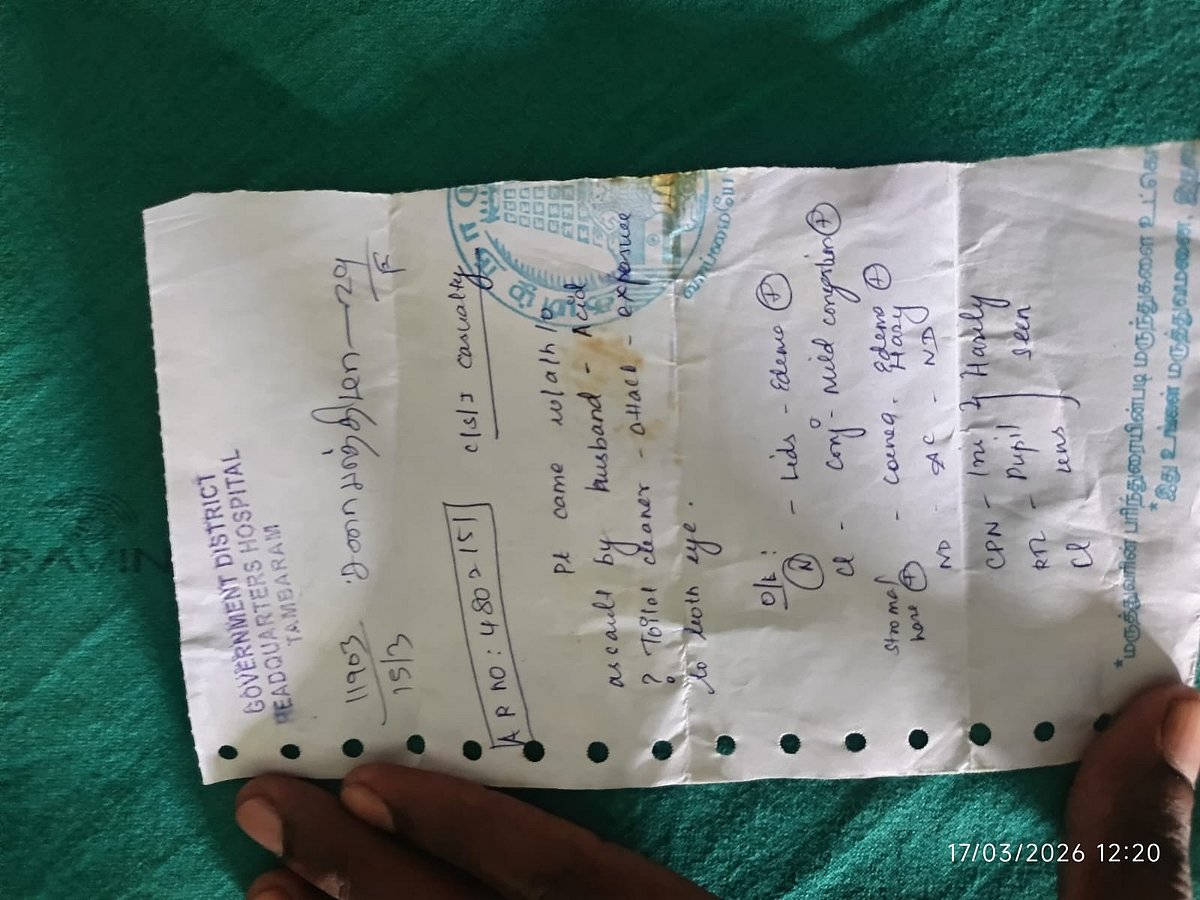 GOVERNMENT DISTRICT
HEADQUARTERS HOSPITAL
TAMBARAM
11903
15/3
29
F
AR no: 4802151
c/s/s casualty
Pt came
assault by husband - Acid
? Toilet cleaner - attack - exposure
to both eye.
O/E:
N - Lids - Edema +
Cl - Conj - Mild congestion +
Stromal haze + - cornea - Edema + Hazy
ND - AC - ND
CPN - Iris
RTL - Pupil Hazily seen
Cl Lens
*மருத்துவரின் பரிந்துரையின்படி மருந்துகளை
*இது உங்கள் மருத்துவமனை.
17/03/2026 12:20